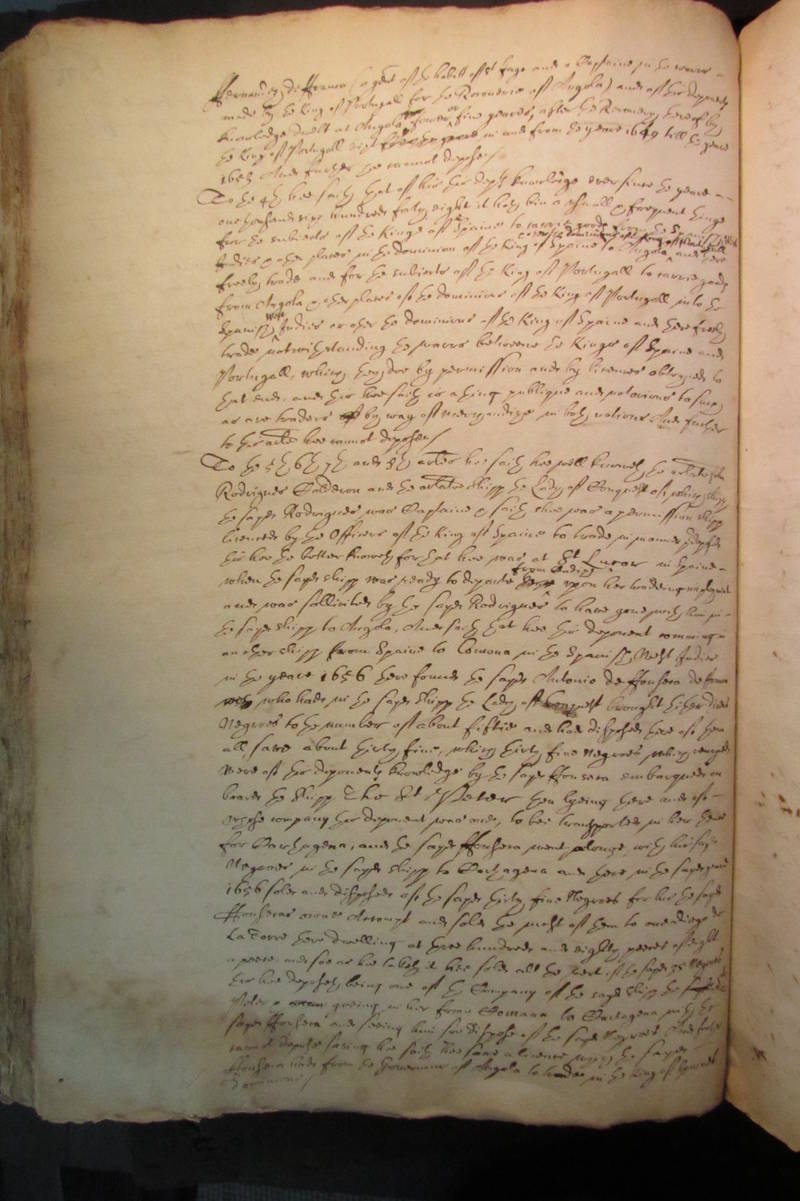 made by the King of Portugall for the Governor of Angola) and of his deposents
knowledge dwelt at Angola fower or five yeares, after the
the King of Portugall in and from the yeare 1649 till the yeare
And further he cannot depose
To the 4th hee saith that of his this depts knowledge ever since the yeare
one thousand sixe hundred forty eight it hath bin a usuall & frequent thinge
for the subiects of the Kinge of Spaine to carrie goods from the Spanish West
Indies & other places in the dominion of the King of Spaine to Angola, and there
freely trade and for the subiects of the King of Portugall to carrie goods
from Angola & other places of the dominions of the King of Portugall into the
Spanish West Indies or other the dominions of the King of Spaine and there freely
trade notwithstanding the warrs betweene the Kings of Spaine and
Portugall, which they doe by permission and by licences obteyned to
that end, and this hee saith is a thing publique and notorious to such
as are traders by way of Merchandize in both nations And further
to this arte hee cannot depose
To the 5th 6th 7th and 8th arles hee saith hee well knoweth the arlate
Rodrigues Calderon and the arlate shipp the Lady of Conquest of which shipp
the sayd Rodrigues was Captaine & saith shee was a permission shipp
licenced by the Officers of the King of Spaine to trade in manner
this hee the better knoweth for that hee was at St Lucar in Spaine
when the sayd shipp was ready to departe from thence upon her trading imployment
and was sollicited by the sayd Rodrigues to have gone with him in
the sayd shipp to Angola, And saith that hee this deponent comming in
another shipp from Spaine to Comona in the Spanish West Indies
in the yeare 1656 there found the sayd Antonio de ffonseca
who had in the sayd shipp the Lady of Conquest brought thither divers
Negroes to the number of about fiftie and had disposed there of them
all save about thirty five, which thirty five Negroes
were of this deponents knowledge by the sayd ffonseca embarqued on
board the shipp The St Peter then lyeing there and of
whose company this deponent was one, to bee transported in her thence
for Carthagena, and the sayd ffonseca went alonge with his sayd
Negroes in the sayd shipp to Carthagena and there in the sayd yeare
1656 sold and disposed of the sayd thirty five Negroes for his the sayd
ffonsecas owne Accompt and sold the most of them to one diego de
La Torre there dwelling at three hundred and eighty peeces of eight
a peece and soe as hee taketh it hee sold all the rest of the sayd 35 Negroes
this hee deposeth being one of the Company of the sayd shipp the Saint
Peter & goeing in her from Comana to Cartagena with the
sayd ffonseca and seeing him soe dispose of the sayd Negroes And further
cannot depose saving hee saith hee saw a licence which the sayd
ffonseca had from the Governour of Angola to trade in the King of Spaines
Dominions